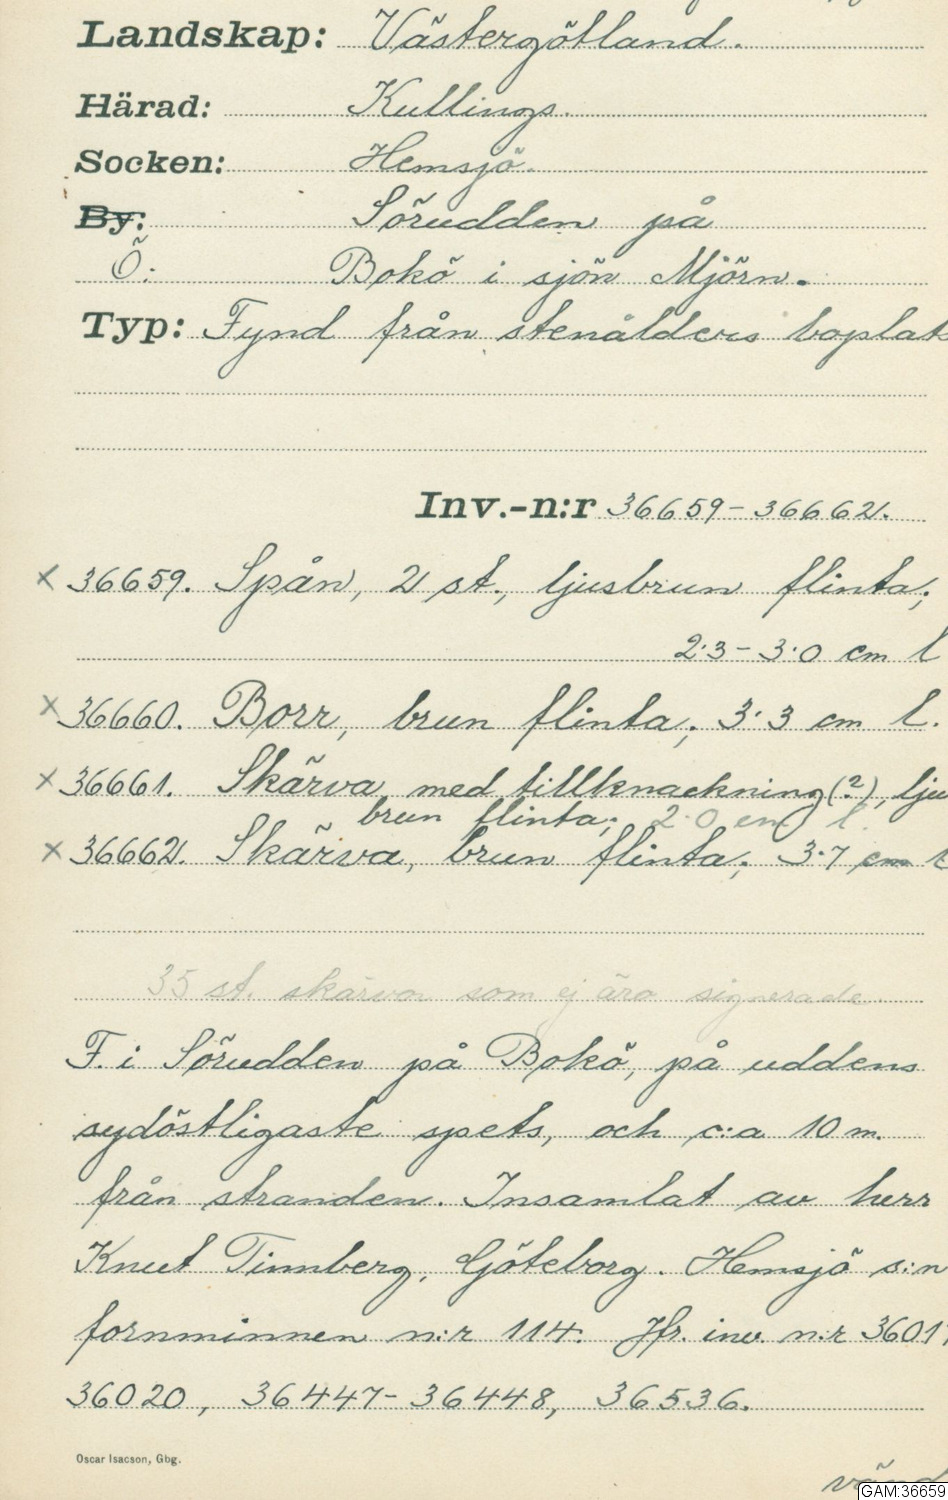 Landskap: Västergötland.
Härad: Kullings.
Socken: Hemsjö.
By: Sörudden på
Ö: Bokö i sjön Mjörn.
Typ: Fynd från stenålders boplats
Inv.-n:r 36659-36662.
× 36659. Spån, 2 st., ljusbrun flinta;
2.3-3.0 cm l
× 36660. Borr, brun flinta; 3.3 cm l.
× 36661. Skärva med tillknackning (?), lju
brun flinta; 2.0 cm l.
× 36662. Skärva, brun flinta; 3.7 cm l
35 st. skärvor som ej äro signerade.
F. i Sörudden på Bokö, på uddens
sydöstligaste spets, och c:a 10 m.
från stranden. Insamlat av herr
Knut Tinnberg, Göteborg. Hemsjö s:n
fornminnen n:r 114. Jfr. inv. n:r 3601
36020, 36447-36448, 36536.
Oscar Isacson, Gbg.
vänd
GAM:36659